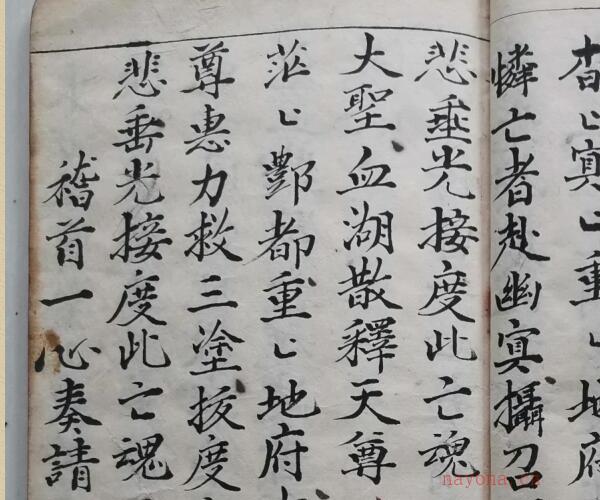 杳〻冥〻重〻地府
憐亡者赴幽冥攝召
悲垂光接度此亡魂
大聖血湖散釋天尊
茫〻酆都重〻地府
尊惠力救三塗拔度
悲垂光接度此亡魂
稽首一心奏請
nayona.cn